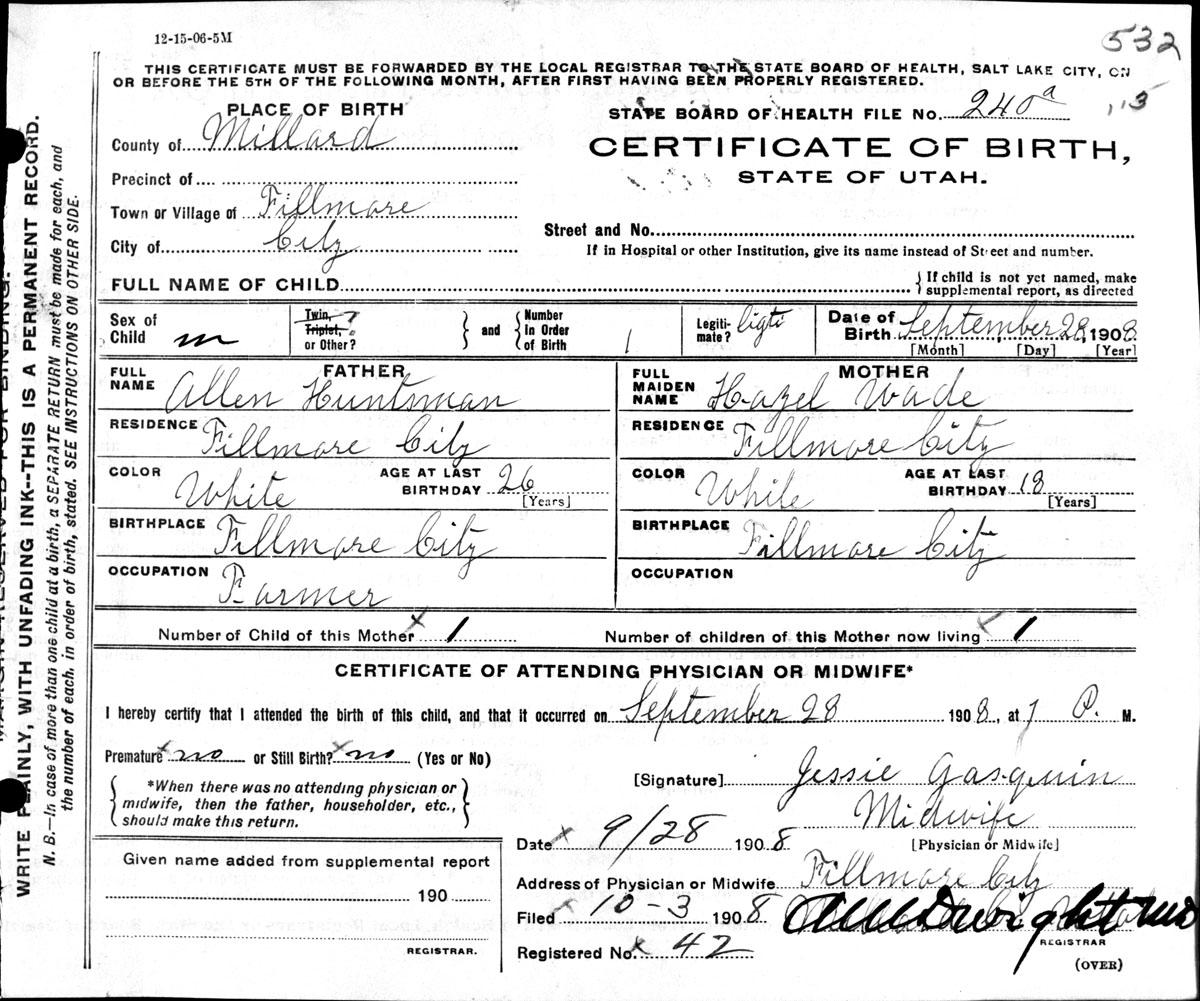 12-15-06-5M
532
THIS CERTIFICATE MUST BE FORWARDED BY THE LOCAL REGISTRAR TO THE STATE BOARD OF HEALTH, SALT LAKE CITY, ON
OR BEFORE THE 5TH OF THE FOLLOWING MONTH, AFTER FIRST HAVING BEEN PROPERLY REGISTERED.
PLACE OF BIRTH
STATE BOARD OF HEALTH FILE No. 240a
County of Millard
CERTIFICATE OF BIRTH,
STATE OF UTAH.
Precinct of
Town or Village of Fillmore
City of City
Street and No.
If in Hospital or other Institution, give its name instead of Street and number.
FULL NAME OF CHILD
{ If child is not yet named, make
supplemental report, as directed
Sex of Child m
Twin, Triplet, or Other? } and { Number In Order of Birth 1
Legiti-mate? ligte
Date of Birth September 28, 1908.
[Month] [Day] [Year]
FATHER
MOTHER
FULL NAME Allen Huntsman
FULL MAIDEN NAME Hazel Wade
RESIDENCE Fillmore City
RESIDENCE Fillmore City
COLOR White AGE AT LAST BIRTHDAY 26 [Years]
COLOR White AGE AT LAST BIRTHDAY 18 [Years]
BIRTHPLACE Fillmore City
BIRTHPLACE Fillmore City
OCCUPATION Farmer
OCCUPATION
Number of Child of this Mother x 1
Number of children of this Mother now living x 1
CERTIFICATE OF ATTENDING PHYSICIAN OR MIDWIFE*
I hereby certify that I attended the birth of this child, and that it occurred on September 28 1908, at 7 P. M.
Premature x no or Still Birth? x no (Yes or No)
[Signature] Jessie Gasquin
{ *When there was no attending physician or
midwife, then the father, householder, etc.,
should make this return. }
Midwife
[Physician or Midwife]
Date x 9/28 1908
Given name added from supplemental report
190
REGISTRAR.
Address of Physician or Midwife Fillmore City
Filed x 10-3 1908
REGISTRAR
Registered No. x 42
(OVER)
WRITE PLAINLY, WITH UNFADING INK--THIS IS A PERMANENT RECORD.
N. B.—In case of more than one child at a birth, a SEPARATE RETURN must be made for each, and
the number of each, in order of birth, stated. SEE INSTRUCTIONS ON OTHER SIDE.